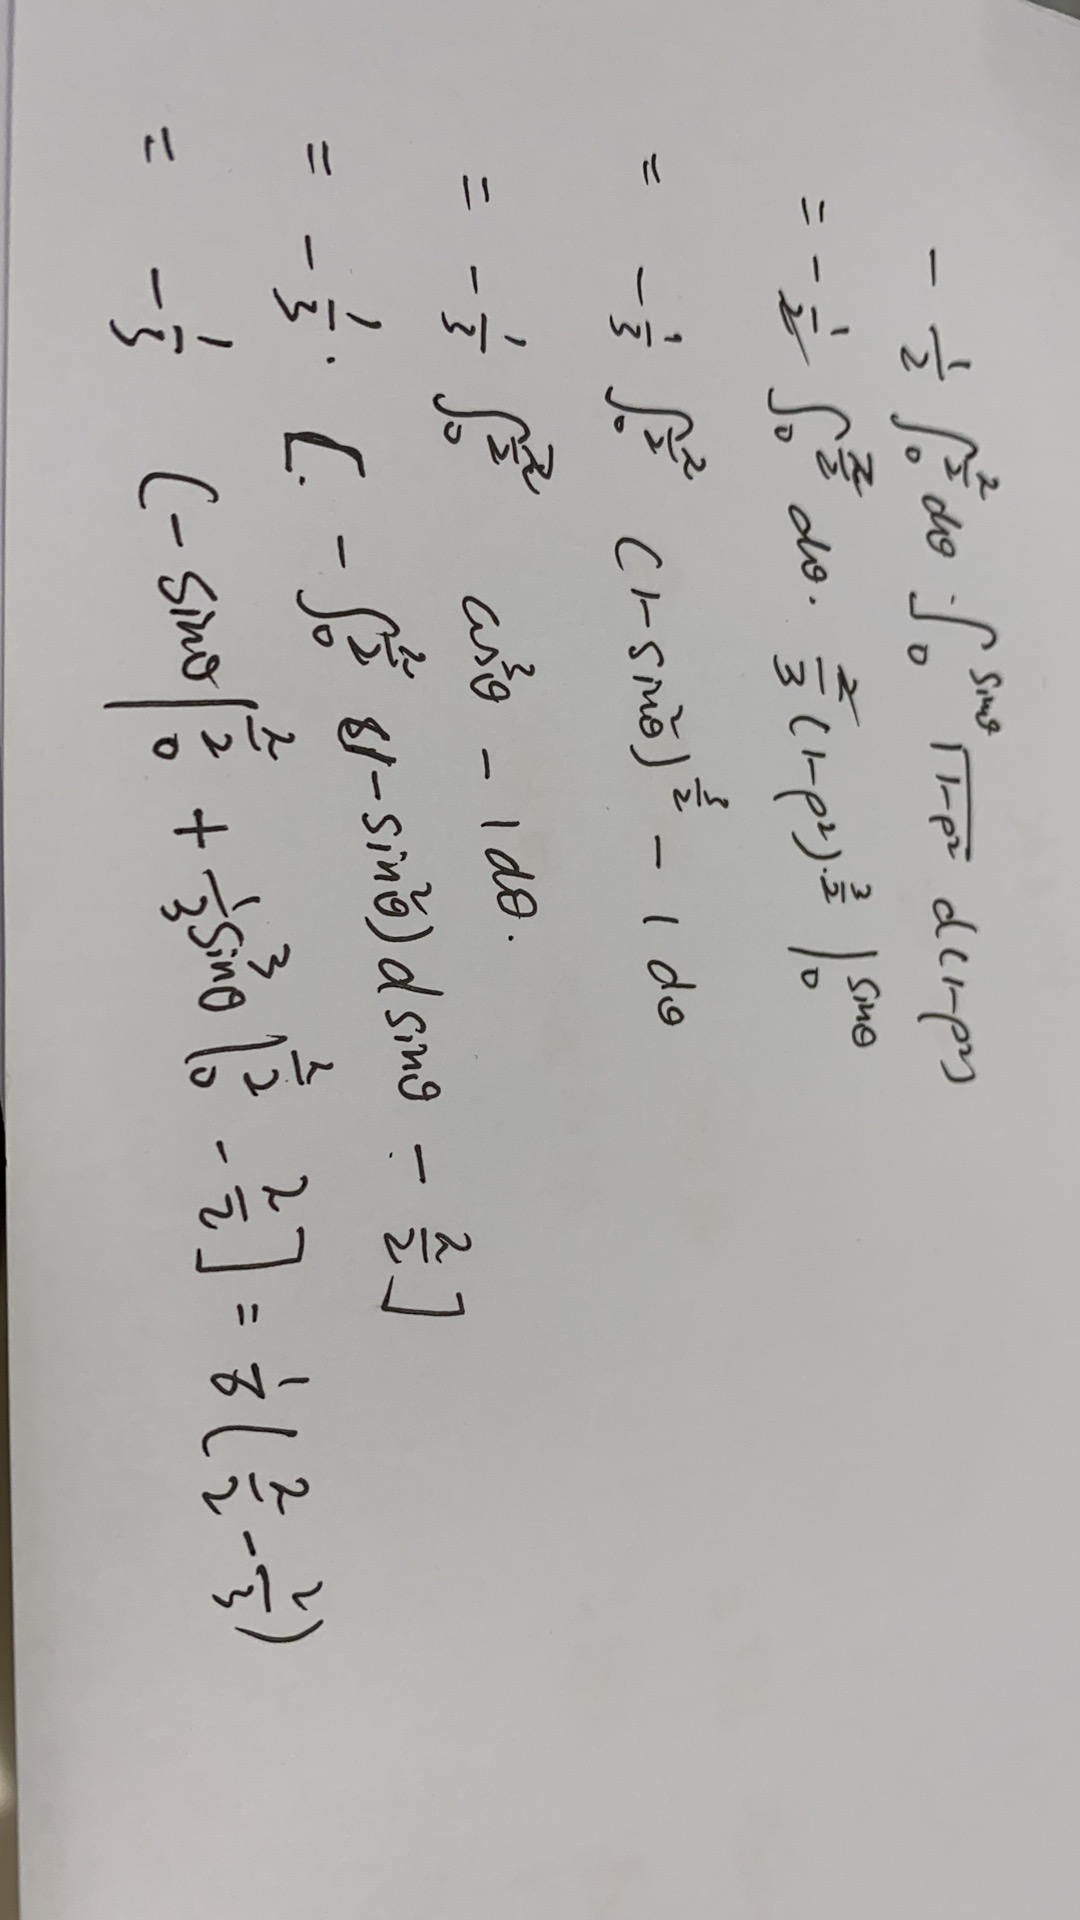 - 1/2 ∫₀^(π/2) dθ · ∫₀^(sinθ) √(1-ρ²) d(1-ρ²)
= - 1/2 ∫₀^(π/2) dθ · 2/3 (1-ρ²)^(3/2) |₀^(sinθ)
= - 1/3 ∫₀^(π/2) (1-sin²θ)^(3/2) - 1 dθ
= - 1/3 ∫₀^(π/2) cos³θ - 1 dθ.
= - 1/3 · [ - ∫₀^(π/2) (1-sin²θ) d sinθ - π/2 ]
= - 1/3 (- sinθ |₀^(π/2) + 1/3 sin³θ |₀^(π/2) - π/2 ] = 1/8 ( π/2 - 2/3 )